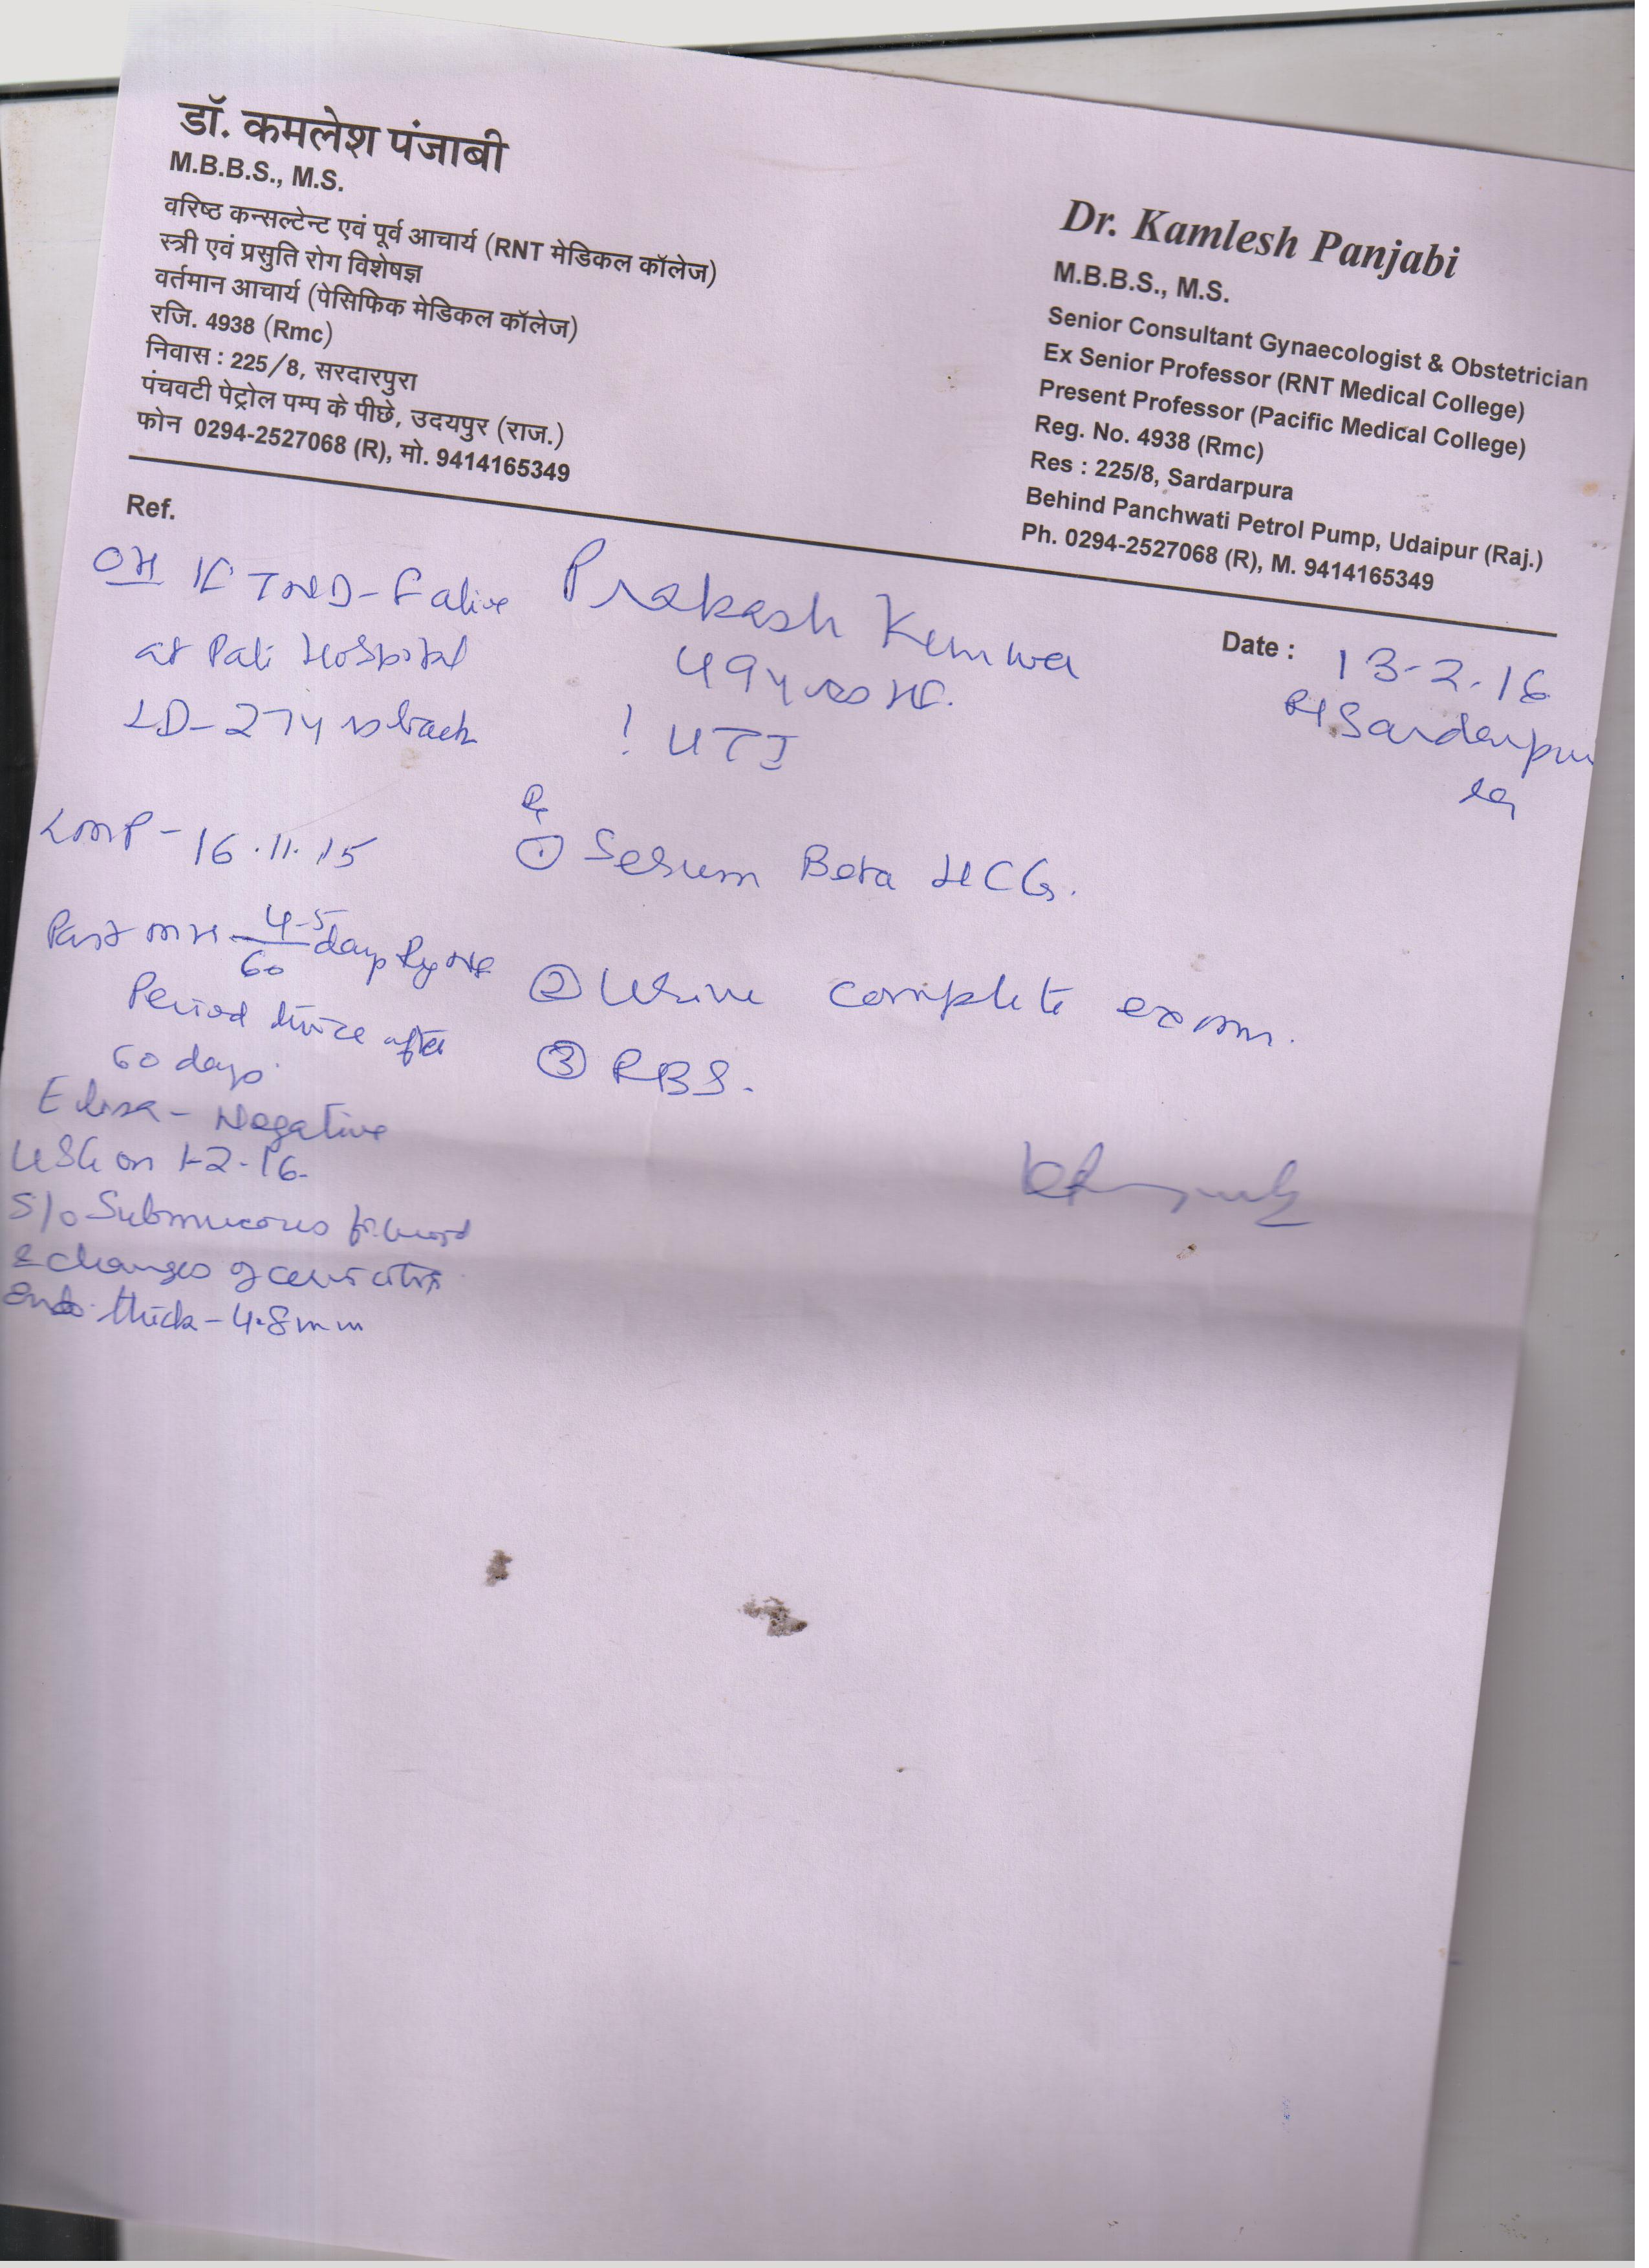 डॉ. कमलेश पंजाबी
M.B.B.S., M.S.
वरिष्ठ कन्सल्टेन्ट एवं पूर्व आचार्य (RNT मेडिकल कॉलेज)
स्त्री एवं प्रसुति रोग विशेषज्ञ
वर्तमान आचार्य (पेसिफिक मेडिकल कॉलेज)
रजि. 4938 (Rmc)
निवास : 225/8, सरदारपुरा
पंचवटी पेट्रोल पम्प के पीछे, उदयपुर (राज.)
फोन 0294-2527068 (R), मो. 9414165349
Dr. Kamlesh Panjabi
M.B.B.S., M.S.
Senior Consultant Gynaecologist & Obstetrician
Ex Senior Professor (RNT Medical College)
Present Professor (Pacific Medical College)
Reg. No. 4938 (Rmc)
Res : 225/8, Sardarpura
Behind Panchwati Petrol Pump, Udaipur (Raj.)
Ph. 0294-2527068 (R), M. 9414165349
Ref.
Date : 13-2-16
Sardarpu
ra
Prakash
49
! UTI
OH FTND-F alive
at Pali Hospital
LD-27y back
LMP-16.11.15
Past MH 4-5/60 days
Period twice after
60 days.
Elisa - Negative
USG on 1-2-16.
S/o Submucous fibroid
& changes of cervicitis
endo. thick-4.8mm
① Serum Beta HCG.
② Urine complete exam.
③ RBS.